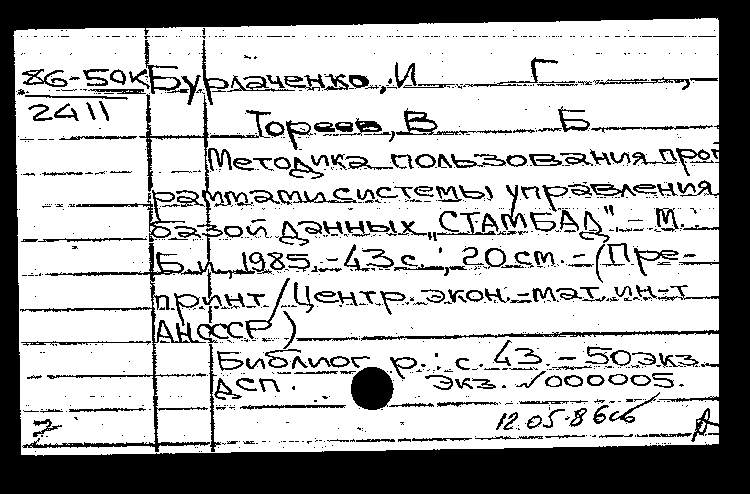 86-50К Бурлаченко, И Г ,
2411 Тореев, В Б
Методика пользования прог
раммами системы управления
базой данных „СТАМБАД" – М.:
Б.и, 1985. – 43 с.; 20 см. – (Пре-
принт / Центр. экон.-мат. ин-т
АНСССР)
Библиогр.: с. 43 – 50 экз
ДСП. Экз. №000005.
12.05.86
7